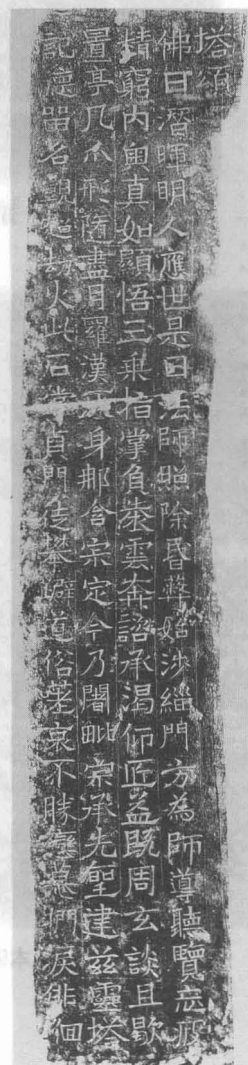 塔頌
佛日潛暉明人應世是曰法師照除昏弊始涉緇門方為師導聽覽忘疲
精窮內奧真如顯悟三乘指掌負袠雲奔諮承渴仰匠益既周玄談且歇
置亭几爪形隨盡日羅漢身那含宗定今乃闍毗宗承先聖建茲靈塔
記德留名覬超劫火此石常貞門徒攀躃道俗哀不勝戀慕捫淚徘徊